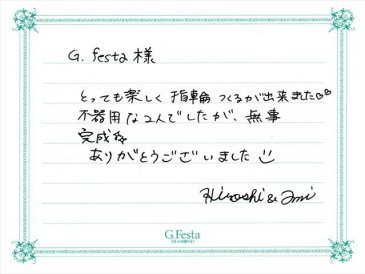 G. festa 様
とっても楽しく 指輪 つくるが出来ました♡♡
不器用な2人でしたが、無事
完成☆
ありがとうございました
Hiroshi & Ami
G.Festa
DIAMOND